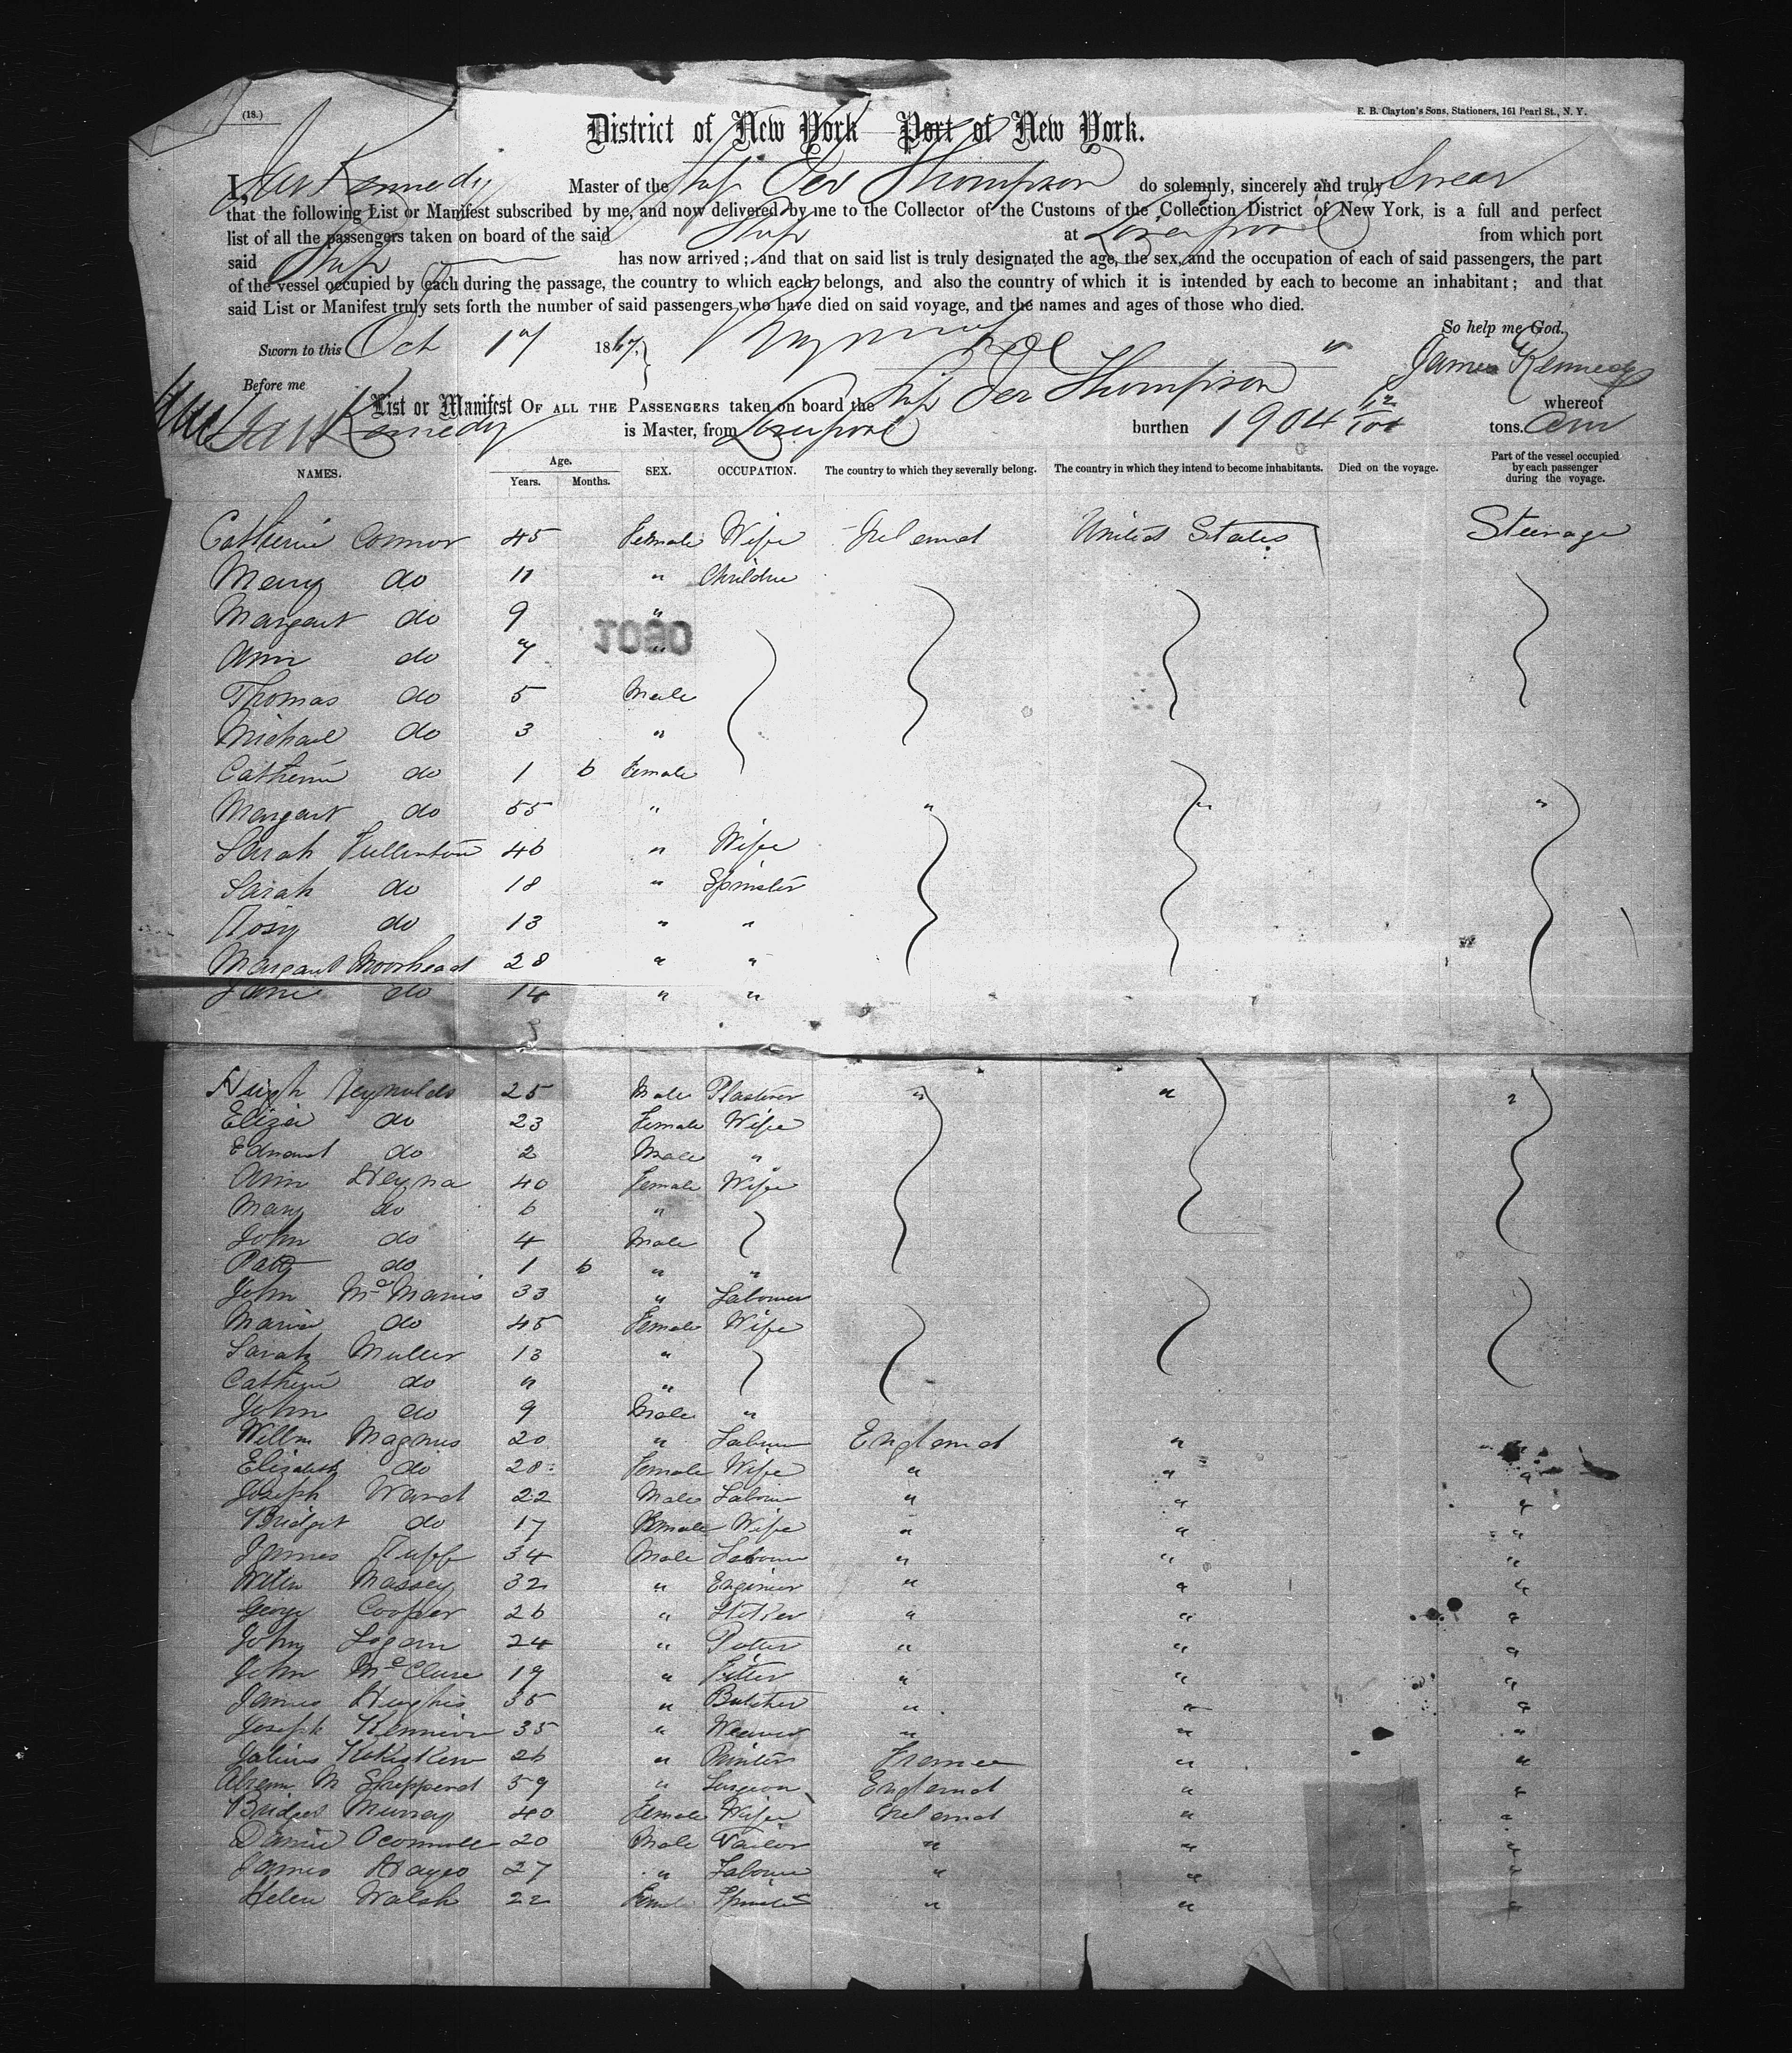 (18.)
E. B. Clayton's Sons, Stationers, 161 Pearl St., N. Y.
District of New York—Port of New York.
I, Jas Kennedy Master of the Ship Geo Thompson do solemnly, sincerely and truly Swear
that the following List or Manifest subscribed by me, and now delivered by me to the Collector of the Customs of the Collection District of New York, is a full and perfect
list of all the passengers taken on board of the said Ship at Liverpool from which port
said Ship has now arrived; and that on said list is truly designated the age, the sex, and the occupation of each of said passengers, the part
of the vessel occupied by each during the passage, the country to which each belongs, and also the country of which it is intended by each to become an inhabitant; and that
said List or Manifest truly sets forth the number of said passengers who have died on said voyage, and the names and ages of those who died.
So help me God.
Sworn to this Oct 17 1867, James Kennedy
Before me
List or Manifest OF ALL THE PASSENGERS taken on board the Ship Geo Thompson whereof
Jas Kennedy is Master, from Liverpool burthen 1904 12/100 tons.
NAMES. Age. Years. Months. SEX. OCCUPATION. The country to which they severally belong. The country in which they intend to become inhabitants. Died on the voyage. Part of the vessel occupied by each passenger during the voyage.
Catherine Connor 45 Female Wife Ireland United States Steerage
Mary do 11 " Children
Margaret do 9 "
1090
Ann do 7 "
Thomas do 5 Male
Michael do 3 "
Catherine do 1 6 Female
Margaret do 55 " " " "
Sarah Fullerton 46 " Wife
Sarah do 18 " Spinster
Rosy do 13 " "
Margaret Moorhead 28 " "
Jane do 14 " "
Hugh Reynolds 25 Male Plasterer " " "
Eliza do 23 Female Wife
Edward do 2 Male "
Ann Heyna 40 Female Wife
Mary do 6 "
John do 4 Male
Pat do 1 6 " "
John McManis 33 " Labourer
Maria do 45 Female Wife
Sarah Muller 13 "
Catherine do " "
John do 9 Male "
Willm Magnus 20 " Labour England " "
Elizabeth do 28 Female Wife " " "
Joseph Ward 22 Male Labour " " "
Bridget do 17 Female Wife " " "
James Tuff 34 Male Labour " " "
Massey 32 " Engineer " " "
George Cooper 26 " " " "
John Logan 24 " Potter " " "
John McClure 19 " Fitter " " "
James Hughes 35 " Butcher " " "
Joseph 35 " Weaver " " "
Julius 26 " Printer France " "
Abram M Sheppard 59 " Surgeon England " "
Bridget Murray 40 Female Wife Ireland " "
Daniel Oconnell 20 Male Tailor " " "
James Hayes 27 " Labour " " "
Helen Walsh 22 Female Spinster " " "